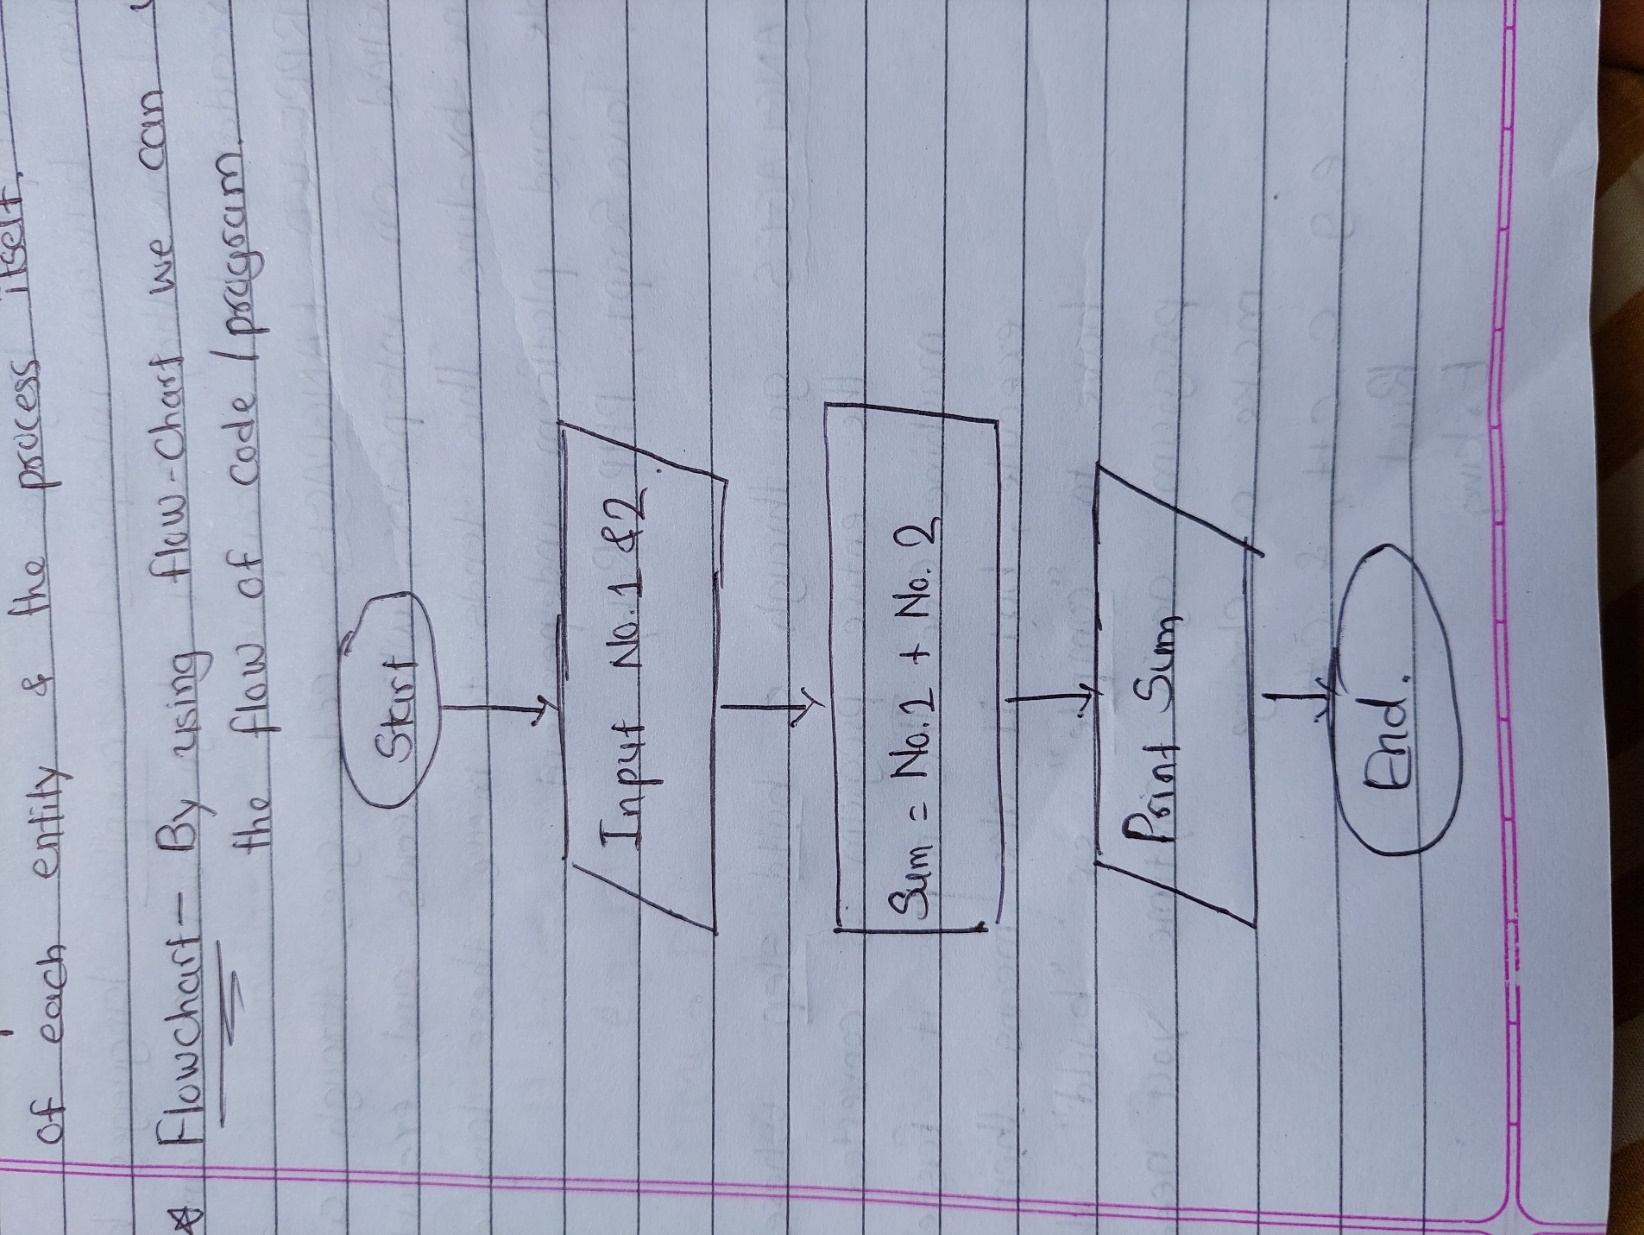 of each entity & the process itself.
* Flowchart - By using flow-chart we can
the flow of code / program.
Start
Input No. 1 & 2
Sum = No. 1 + No. 2
Print Sum
End.